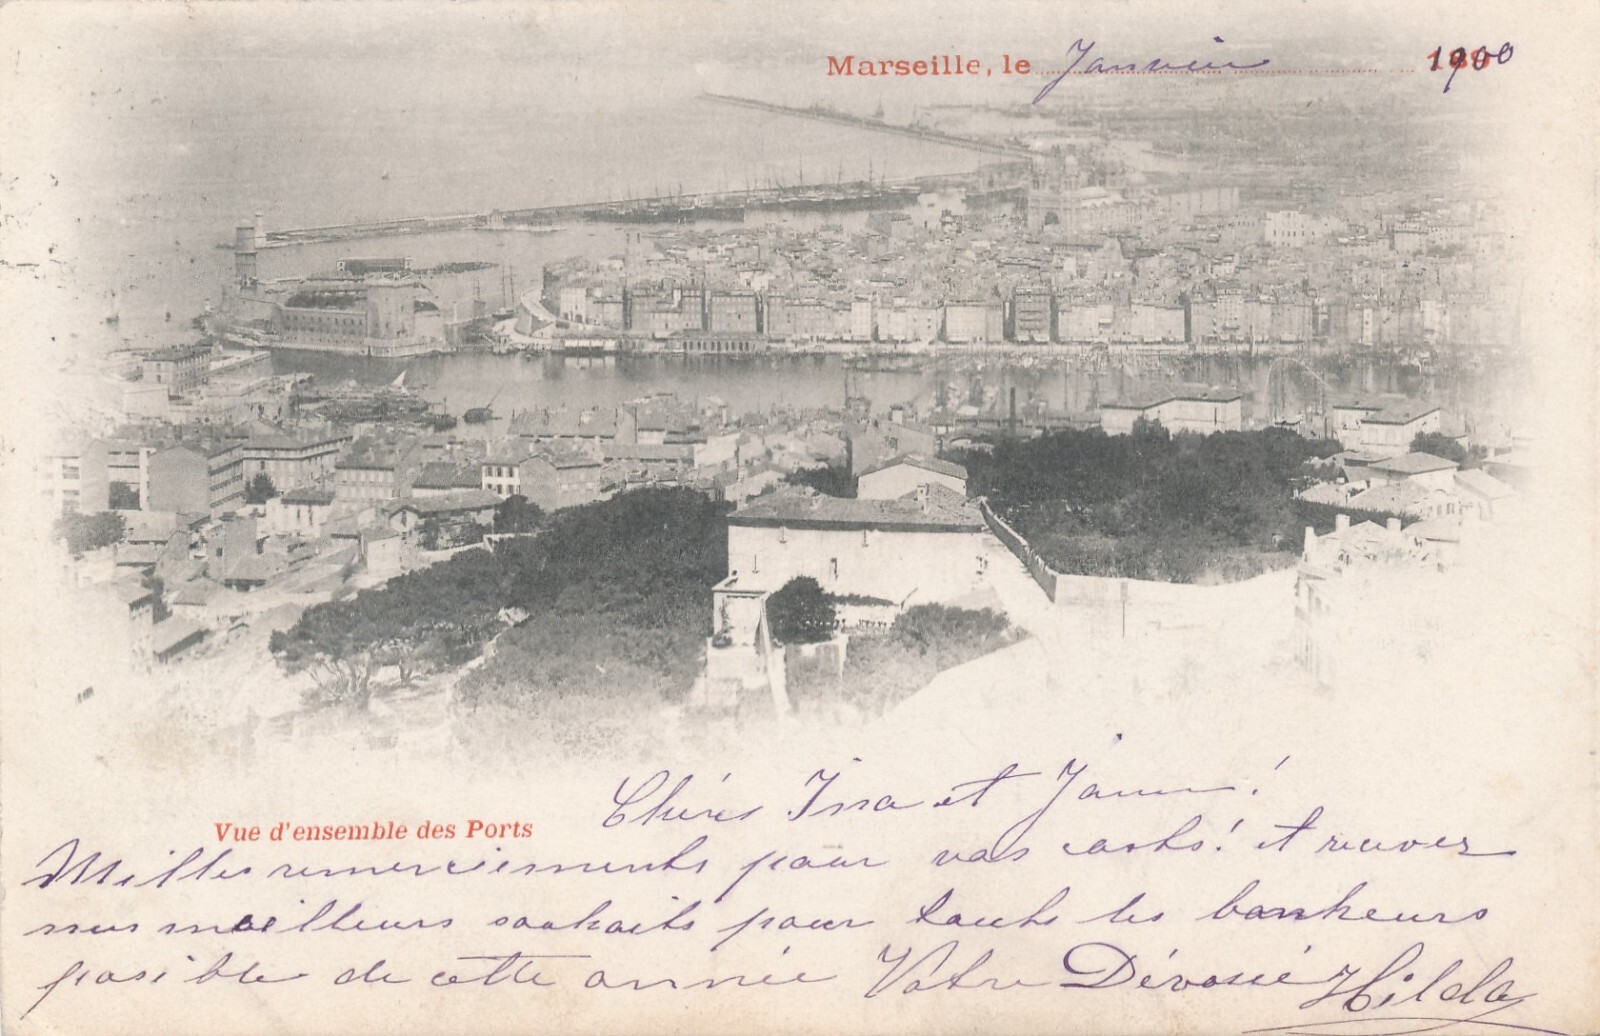 Marseille, le Janvier 1900
Chéres Issa et
Vue d'ensemble des Ports
Milles remerciements pour vos carts! et recevez
mes meilleurs souhaits pour touts les bonheurs
posible de cette année Votre Dévoué Hilda